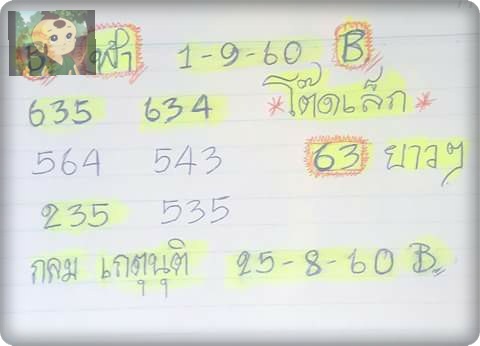 ฟ้า 1-9-60 B
635 634 *โต๊ดเล็ก*
564 543 63 ยาวๆ
235 535
กลม เกตุนุติ 25-8-60 B.